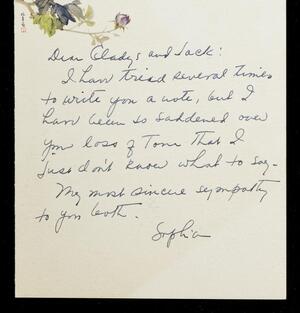 Dear Gladys and Jack:
I have tried several times
to write you a note, but I
have been so saddened over
your loss of Tom that I
just don't know what to say-
My most sincere sympathy
to you both.
Sophia